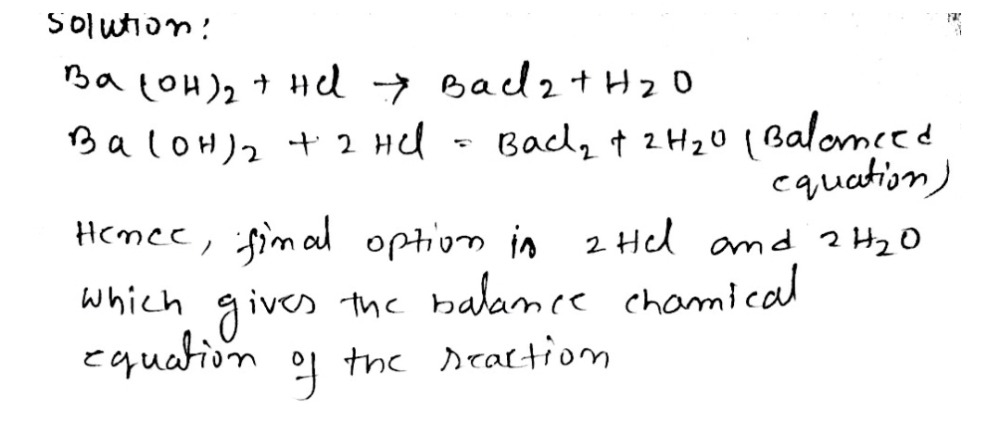 Solution:
Ba(OH)2 + HCl → BaCl2 + H2O
Ba(OH)2 + 2 HCl = BaCl2 + 2H2O (Balamced
equation)
Hence, final option is 2 HCl and 2 H2O
which gives the balance chamical
equation of the reaction